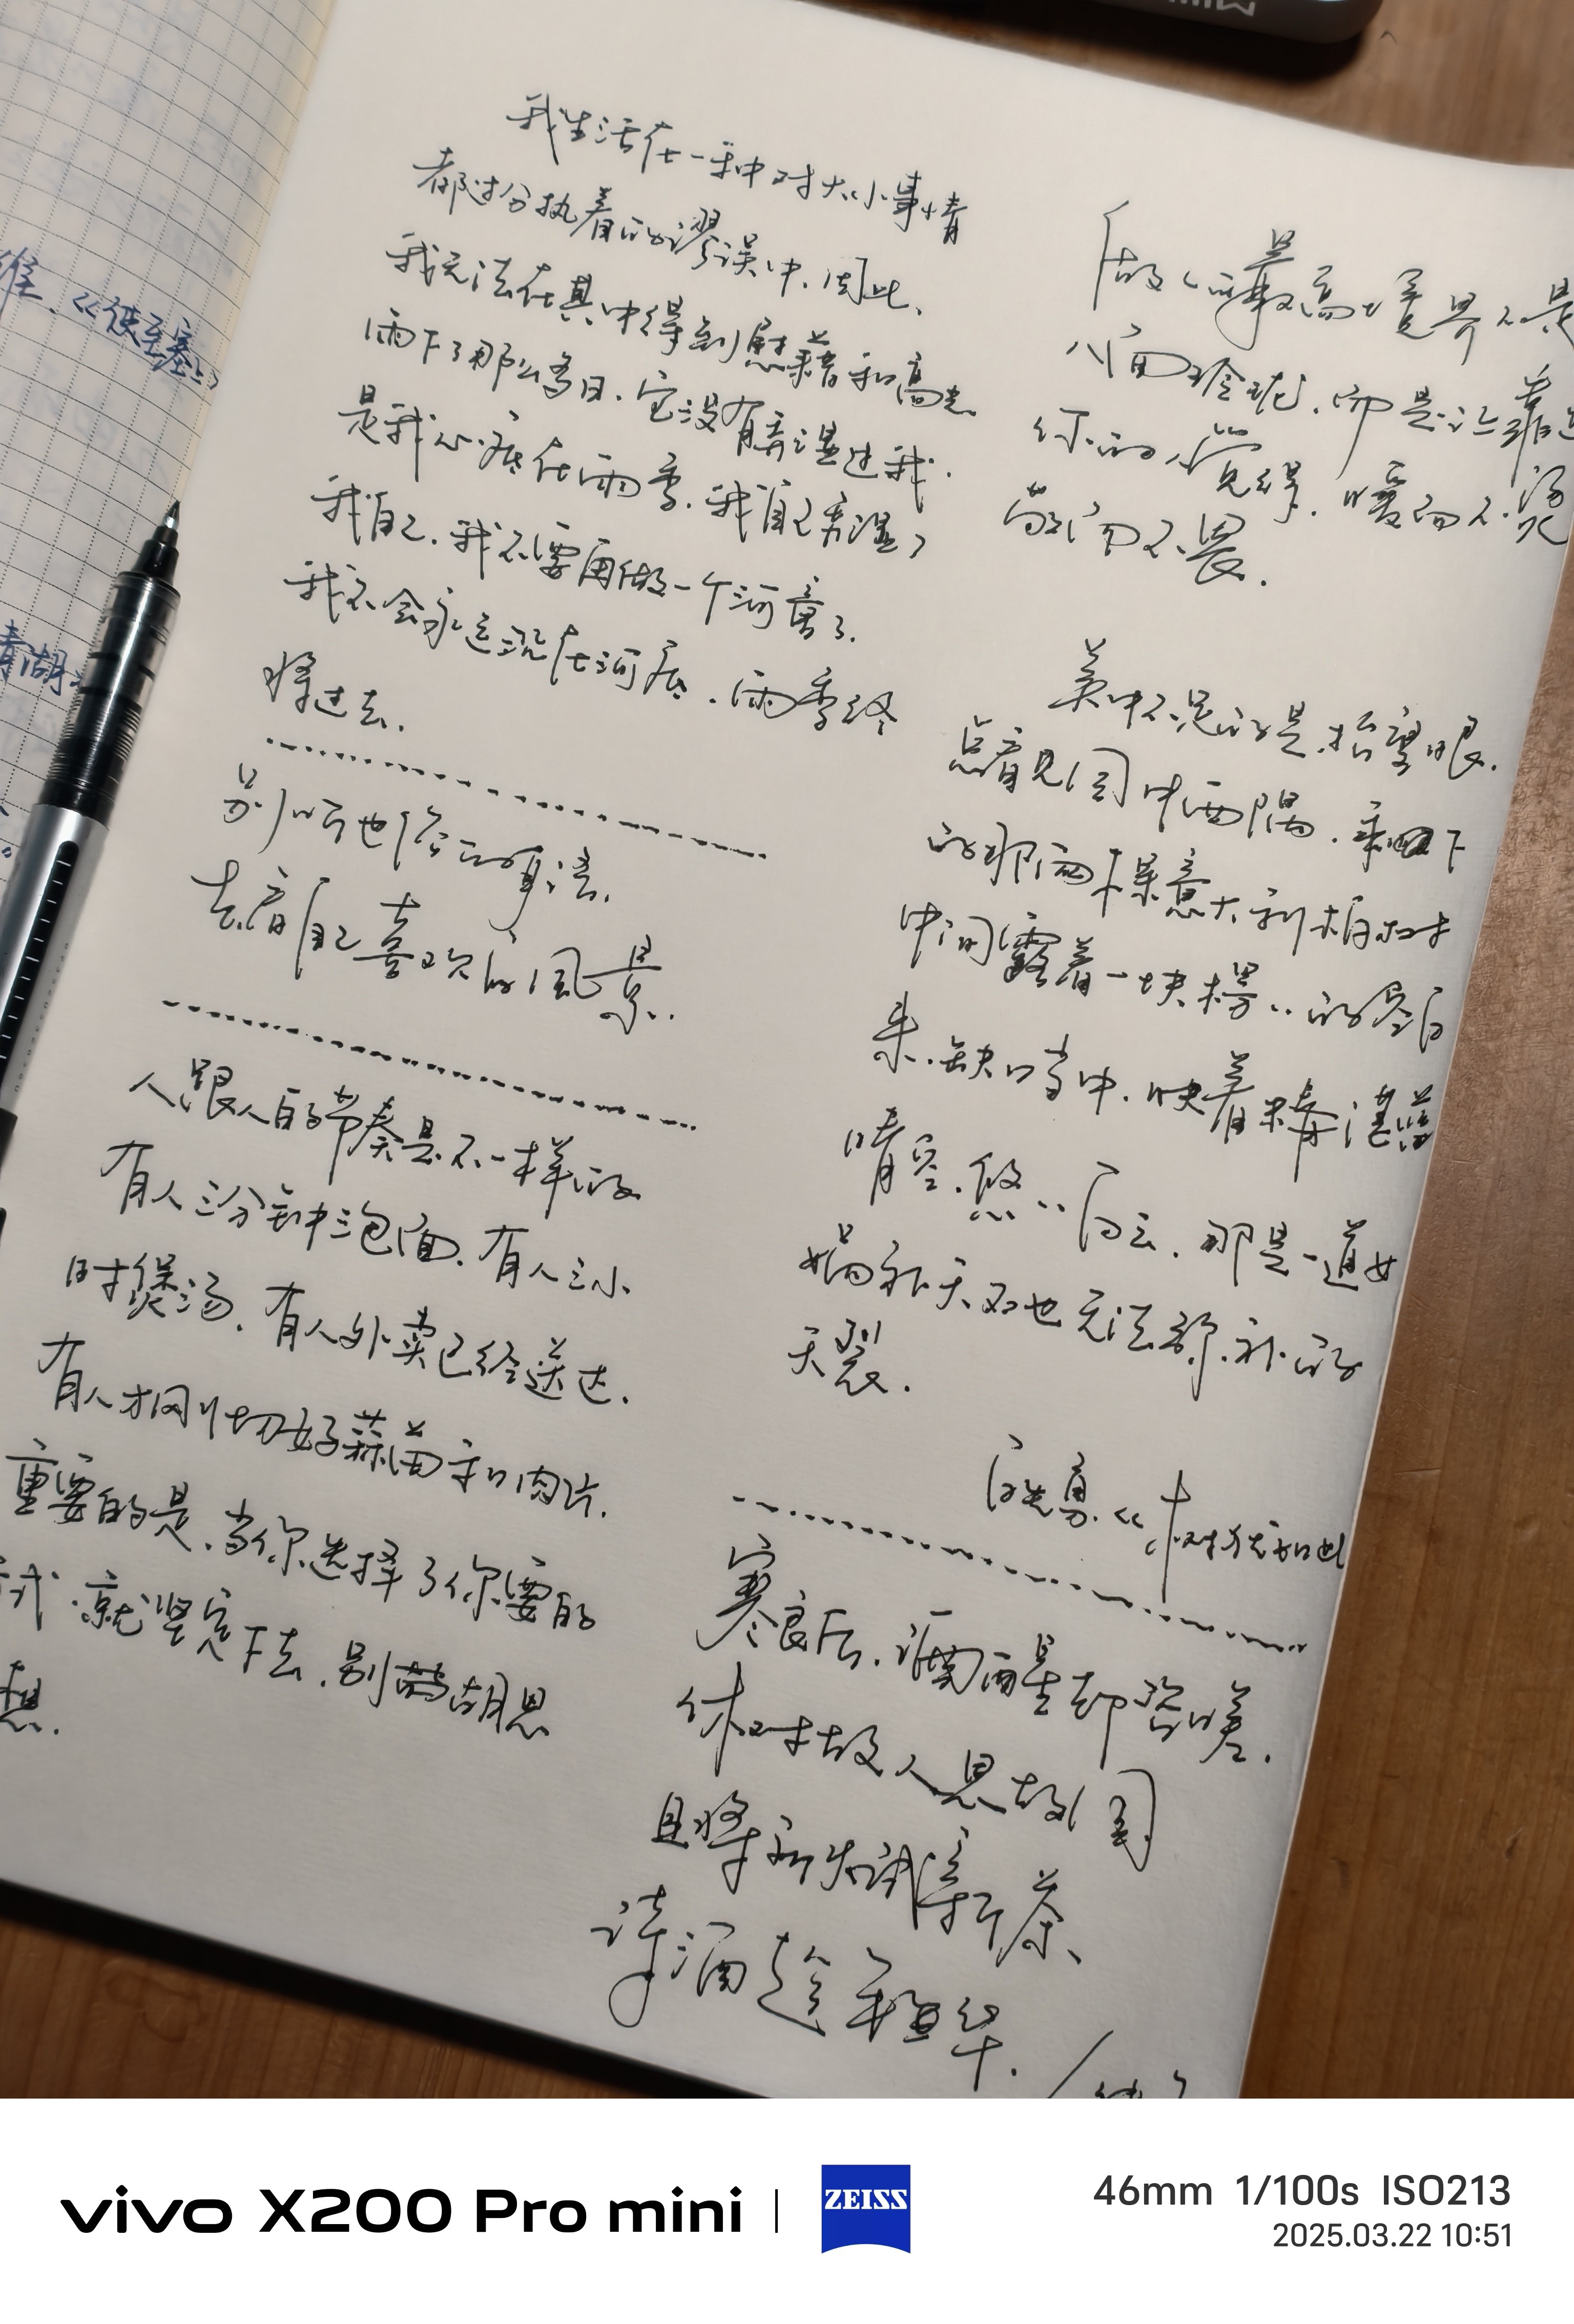 维.《使至塞上》
青湖
我生活在一种对大小事情
都过分执着的谬误中.因此、
我无法在其中得到慰藉和高光
雨下了那么多日.它没有弄湿过我.
是我心底在雨季.我自己弄湿了
我自己.我不要再做一个河童了.
我不会永远沉在河底.雨季终
将过去.
别听他们的算法.
去看自己喜欢的风景..
人跟人的节奏是不一样的
有人三分钟泡面.有人三小
时煲汤.有人外卖已经送达.
有人才刚刚切好蒜苗和肉片.
重要的是.当你选择了你要的
式.就坚定下去.别胡思
想.
做人的最高境界不是
八面玲珑.而是让靠近
你的人觉得.暖而不烫
敬而不畏.
美中不足的是.抬望眼.
总看见园中西隅.剩下
的那两棵意大利柏树
中间露着一块楞..的空白
来.缺口当中.映着
晴空.悠..白云.那是一道女
娲补天也无法弥补的
天裂.
白先勇.《树犹如此
寒食后.酒醒却咨嗟.
休对故人思故国
且将新火试新茶、
诗酒趁年华.
vivo X200 Pro mini
ZEISS
46mm 1/100s ISO213
2025.03.22 10:51